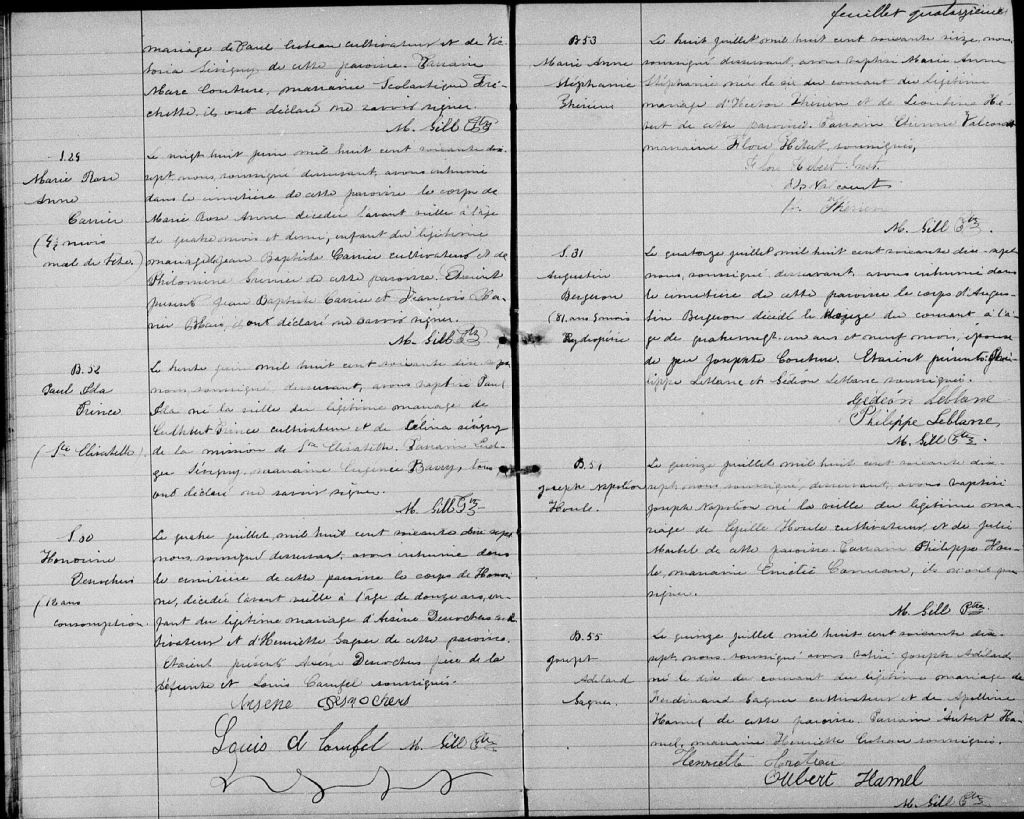 mariage de Paul Croteau cultivateur et de Vic-
toria Sévigny de cette paroisse. Parrain
Marc Couture, marraine Scolastique Fré-
chette, ils ont déclaré ne savoir signer.
M. Gill Ptre
S.29
Marie Rose
Anne
Carrier
(4½ mois
mal de tête.)
Le vingt huit juin mil huit cent soixante dix
sept, nous, soussigné desservant, avons inhumé
dans le cimetière de cette paroisse le corps de
Marie Rose Anne décédée l'avant veille à l'âge
de quatre mois et demi, enfant du légitime
mariage de Jean Baptiste Carrier cultivateur et de
Philomine Grenier de cette paroisse. Etaient
présents Jean Baptiste Carrier et François Xa-
vier Blais, ont déclaré ne savoir signer.
M. Gill Ptre
B.52
Paul Ida
Prince
(Ste Elisabeth)
Le trente juin mil huit cent soixante dix sept
nous, soussigné desservant, avons baptisé Paul
Ida né la veille du légitime mariage de
Cuthbert Prince cultivateur et de Célina Sévigny
de la mission de Ste Elisabeth. Parrain
Sévigny, marraine Eugénie Barry, tous
ont déclaré ne savoir signer.
M. Gill Ptre
S.30
Honorine
Desrochers
(12 ans
consomption.
Le quatre juillet, mil huit cent soixante dix sept
nous, soussigné desservant, avons inhumé dans
le cimetière de cette paroisse le corps de Honori-
ne, décédée l'avant veille à l'âge de douze ans, en-
fant du légitime mariage d'Arsène Desrochers cul-
tivateur et d'Henriette Gagner de cette paroisse.
Etaient présents Arsène Desrochers père de la
défunte et Louis Camfel soussignés.
Arsene Desrochers
Louis d Camfel M. Gill Ptre
feuillet quatorzième
B53
Marie Anne
Stéphanie
Therien
Le huit juillet mil huit cent soixante seize, nous,
soussigné desservant, avons baptisé Marie Anne
Stéphanie née le six du courant du légitime
mariage d'Hector Therien et de Léontine Hé-
bert de cette paroisse. Parrain Etienne Valcourt
marraine Flore Hébert, soussignés,
Flore Hebert Inst.
Therien
M. Gill Ptre.
S.31
Augustin
Bergeron
(81 ans 9 mois
Hydropisie
Le quatorze juillet mil huit cent soixante dix-sept
nous, soussigné desservant, avons inhumé dans
le cimetière de cette paroisse le corps d'Augus-
tin Bergeron décédé le douze du courant à l'â-
ge de quatre vingt un ans et neuf mois, époux
de feu Josephte Couture. Etaient présents Phi-
lippe Leblanc et Gédéon Leblanc soussignés.
Gédéon Leblanc
Philippe Leblanc
M. Gill Ptre.
B.54
Joseph Napoléon
Houle.
Le quinze juillet mil huit cent soixante dix-
sept, nous, soussigné, desservant, avons baptisé
Joseph Napoléon né la veille du légitime ma-
riage de Houle cultivateur, et de Julie
Martel de cette paroisse. Parrain Philippe Hou-
le, marraine Emélie Garneau, ils n'ont pu
signer.
M. Gill Ptre.
B.55
Joseph
Adélard
Gagner.
Le quinze juillet mil huit cent soixante dix-
sept, nous, soussigné avons baptisé Joseph Adélard
né le dix du courant du légitime mariage de
Ferdinand Gagner cultivateur et de Appolline
Hamel de cette paroisse. Parrain Aubert Ha-
mel, marraine Henriette Croteau soussignés.
Henriette Croteau
Oubert Hamel
M. Gill Ptre